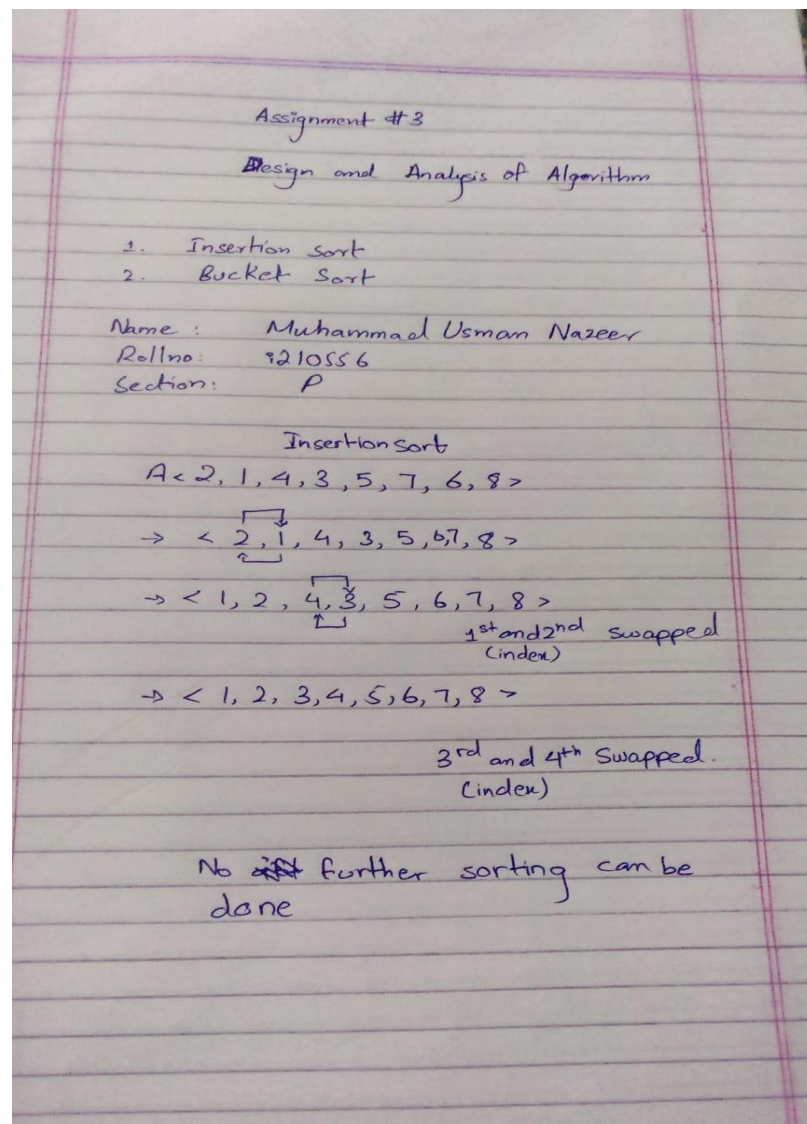 Assignment #3
Design and Analysis of Algorithm
1. Insertion sort
2. Bucket Sort
Name : Muhammad Usman Nazeer
Rollno: i210556
Section: P
Insertion sort
A < 2, 1, 4, 3, 5, 7, 6, 8 >
→ < 2, 1, 4, 3, 5, 6, 7, 8 >
→ < 1, 2, 4, 3, 5, 6, 7, 8 >
1st and 2nd swapped
(index)
→ < 1, 2, 3, 4, 5, 6, 7, 8 >
3rd and 4th Swapped.
(index)
No further sorting can be
done